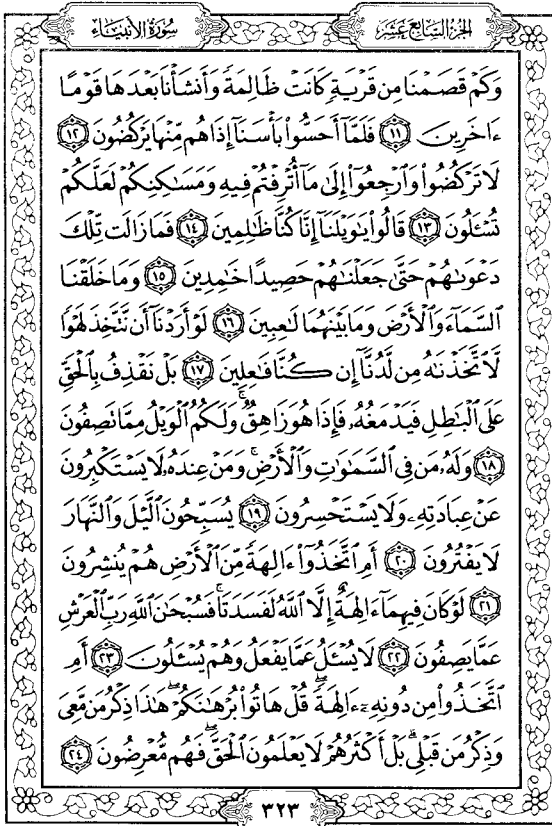 الجزء السابع عشر
سورة الأنبياء
وَكَمْ قَصَمْنَا مِن قَرْيَةٍ كَانَتْ ظَالِمَةً وَأَنشَأْنَا بَعْدَهَا قَوْمًا
ءَاخَرِينَ ۝١١ فَلَمَّآ أَحَسُّوا۟ بَأْسَنَآ إِذَا هُم مِّنْهَا يَرْكُضُونَ ۝١٢
لَا تَرْكُضُوا۟ وَٱرْجِعُوٓا۟ إِلَىٰ مَآ أُتْرِفْتُمْ فِيهِ وَمَسَٰكِنِكُمْ لَعَلَّكُمْ
تُسْـَٔلُونَ ۝١٣ قَالُوا۟ يَٰوَيْلَنَآ إِنَّا كُنَّا ظَٰلِمِينَ ۝١٤ فَمَا زَالَت تِّلْكَ
دَعْوَىٰهُمْ حَتَّىٰ جَعَلْنَٰهُمْ حَصِيدًا خَٰمِدِينَ ۝١٥ وَمَا خَلَقْنَا
ٱلسَّمَآءَ وَٱلْأَرْضَ وَمَا بَيْنَهُمَا لَٰعِبِينَ ۝١٦ لَوْ أَرَدْنَآ أَن نَّتَّخِذَ لَهْوًا
لَّٱتَّخَذْنَٰهُ مِن لَّدُنَّآ إِن كُنَّا فَٰعِلِينَ ۝١٧ بَلْ نَقْذِفُ بِٱلْحَقِّ
عَلَى ٱلْبَٰطِلِ فَيَدْمَغُهُۥ فَإِذَا هُوَ زَاهِقٌ ۚ وَلَكُمُ ٱلْوَيْلُ مِمَّا تَصِفُونَ
۝١٨ وَلَهُۥ مَن فِى ٱلسَّمَٰوَٰتِ وَٱلْأَرْضِ ۚ وَمَنْ عِندَهُۥ لَا يَسْتَكْبِرُونَ
عَنْ عِبَادَتِهِۦ وَلَا يَسْتَحْسِرُونَ ۝١٩ يُسَبِّحُونَ ٱلَّيْلَ وَٱلنَّهَارَ
لَا يَفْتُرُونَ ۝٢٠ أَمِ ٱتَّخَذُوٓا۟ ءَالِهَةً مِّنَ ٱلْأَرْضِ هُمْ يُنشِرُونَ
۝٢١ لَوْ كَانَ فِيهِمَآ ءَالِهَةٌ إِلَّا ٱللَّهُ لَفَسَدَتَا ۚ فَسُبْحَٰنَ ٱللَّهِ رَبِّ ٱلْعَرْشِ
عَمَّا يَصِفُونَ ۝٢٢ لَا يُسْـَٔلُ عَمَّا يَفْعَلُ وَهُمْ يُسْـَٔلُونَ ۝٢٣ أَمِ
ٱتَّخَذُوا۟ مِن دُونِهِۦٓ ءَالِهَةً ۖ قُلْ هَاتُوا۟ بُرْهَٰنَكُمْ ۖ هَٰذَا ذِكْرُ مَن مَّعِىَ
وَذِكْرُ مَن قَبْلِى ۗ بَلْ أَكْثَرُهُمْ لَا يَعْلَمُونَ ٱلْحَقَّ ۖ فَهُم مُّعْرِضُونَ ۝٢٤
٣٢٣